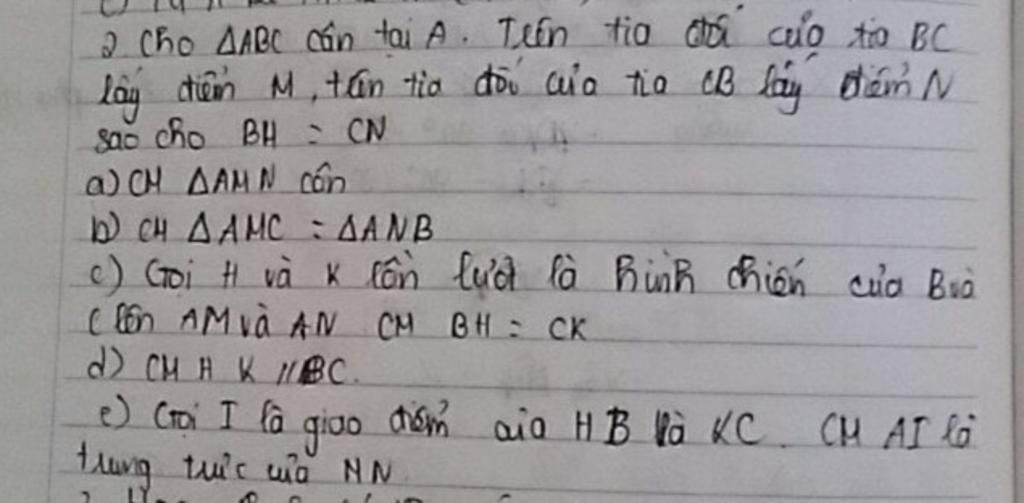 2 Cho ΔABC cân tại A. Trên tia đối của tia BC
lấy điểm M, trên tia đối của tia CB lấy điểm N
sao cho BM = CN
a) CM ΔAMN cân
b) CM ΔAMC = ΔANB
c) Gọi H và K lần lượt là hình chiếu của B và
C lên AM và AN CM BH = CK
d) CM H K // BC.
e) Gọi I là giao điểm của HB và KC. CM AI là
trung trực của MN